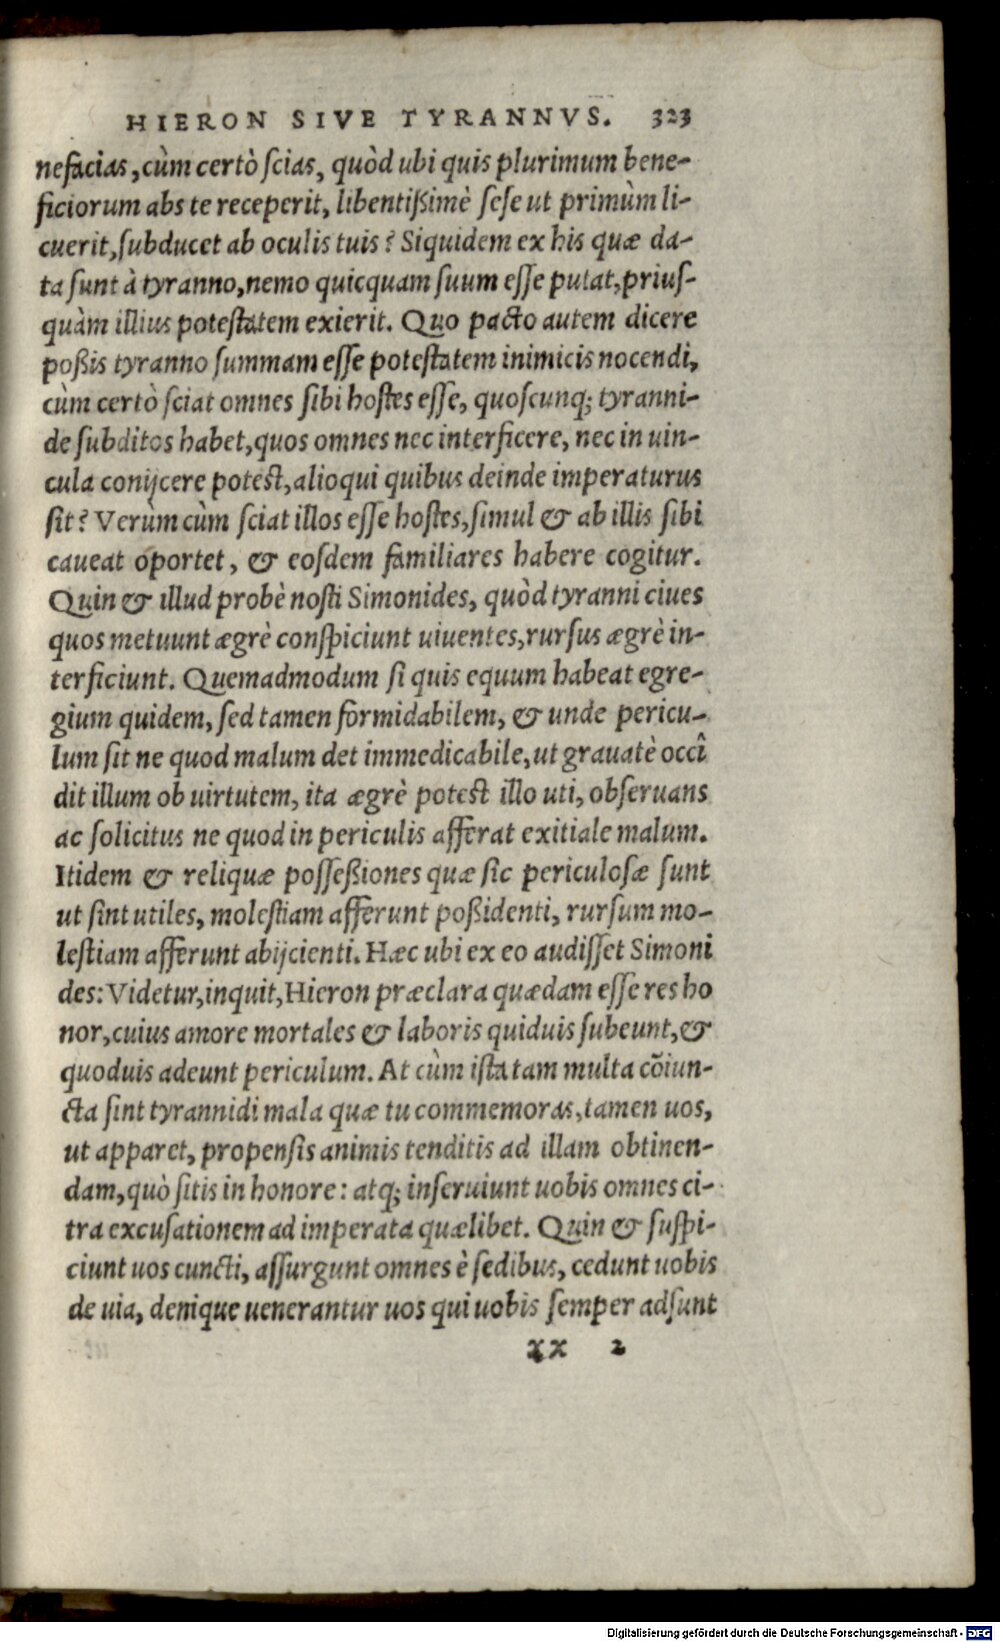 HIERON SIVE TYRANNVS. 323
nefacias, cùm certò ſcias, quòd ubi quis plurimum bene-
ficiorum abs te receperit, libentißimè ſeſe ut primùm li-
cuerit, ſubducet ab oculis tuis? Siquidem ex his quæ da-
ta ſunt à tyranno, nemo quicquam ſuum eſſe putat, priuſ-
quàm illius poteſtatem exierit. Quo pacto autem dicere
poßis tyranno ſummam eſſe poteſtatem inimicis nocendi,
cùm certò ſciat omnes ſibi hoſtes eſſe, quoſcunq; tyranni-
de ſubditos habet, quos omnes nec interficere, nec in uin-
cula conijcere poteſt, alioqui quibus deinde imperaturus
ſit? Verùm cùm ſciat illos eſſe hoſtes, ſimul & ab illis ſibi
caueat oportet, & eoſdem familiares habere cogitur.
Quin & illud probè noſti Simonides, quòd tyranni ciues
quos metuunt ægrè conſpiciunt uiuentes, rurſus ægrè in-
terficiunt. Quemadmodum ſi quis equum habeat egre-
gium quidem, ſed tamen formidabilem, & unde pericu-
lum ſit ne quod malum det immedicabile, ut grauatè occî
dit illum ob uirtutem, ita ægrè poteſt illo uti, obſeruans
ac ſolicitus ne quod in periculis afferat exitiale malum.
Itidem & reliquæ poſſeßiones quæ ſic periculoſæ ſunt
ut ſint utiles, moleſtiam afferunt poßidenti, rurſum mo-
leſtiam afferunt abijcienti. Hæc ubi ex eo audiſſet Simoni
des: Videtur, inquit, Hieron præclara quædam eſſe res ho
nor, cuius amore mortales & laboris quiduis ſubeunt, &
quoduis adeunt periculum. At cùm iſta tam multa cõiun-
cta ſint tyrannidi mala quæ tu commemoras, tamen uos,
ut apparet, propenſis animis tenditis ad illam obtinen-
dam, quò ſitis in honore: atq; inſeruiunt uobis omnes ci-
tra excuſationem ad imperata quælibet. Quin & ſuſpi-
ciunt uos cuncti, aſſurgunt omnes è ſedibus, cedunt uobis
de uia, denique uenerantur uos qui uobis ſemper adſunt
xx 2
Digitalisierung gefördert durch die Deutsche Forschungsgemeinschaft - DFG